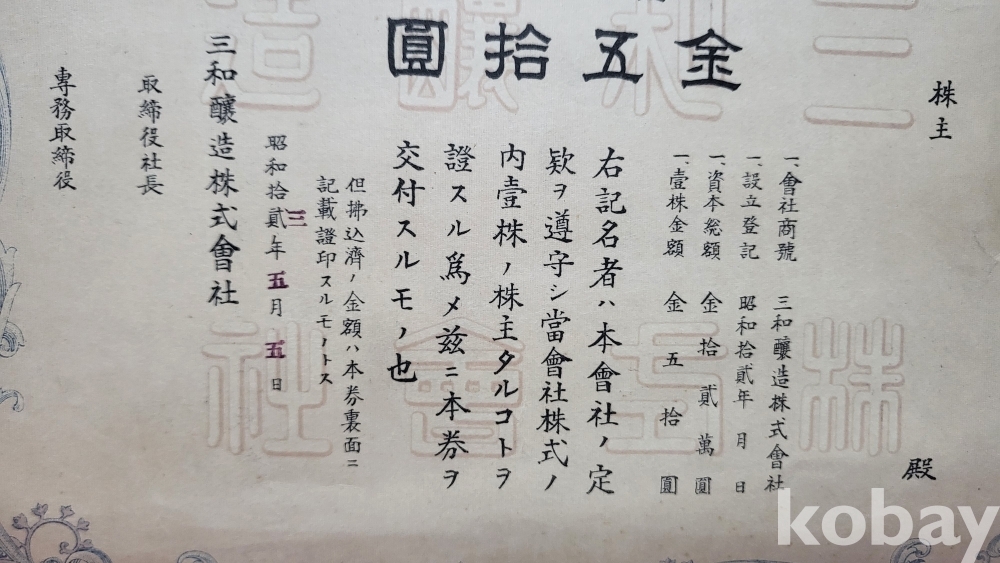 金五拾圓
株主
殿
一、會社商號 三和釀造株式會社
一、設立登記 昭和拾貳年 月 日
一、資本總額 金拾貳萬圓
一、壹株金額 金五拾圓
右記名者ハ本會社ノ定
欵ヲ遵守シ當會社株式ノ
内壹株ノ株主タルコトヲ
證スル爲メ茲ニ本券ヲ
交付スルモノ也
但拂込濟ノ金額ハ本券裏面ニ
記載證印スルモノトス
昭和拾貳年五月五日
三
三和釀造株式會社
取締役社長
專務取締役
三和釀造
株式會社
kobay